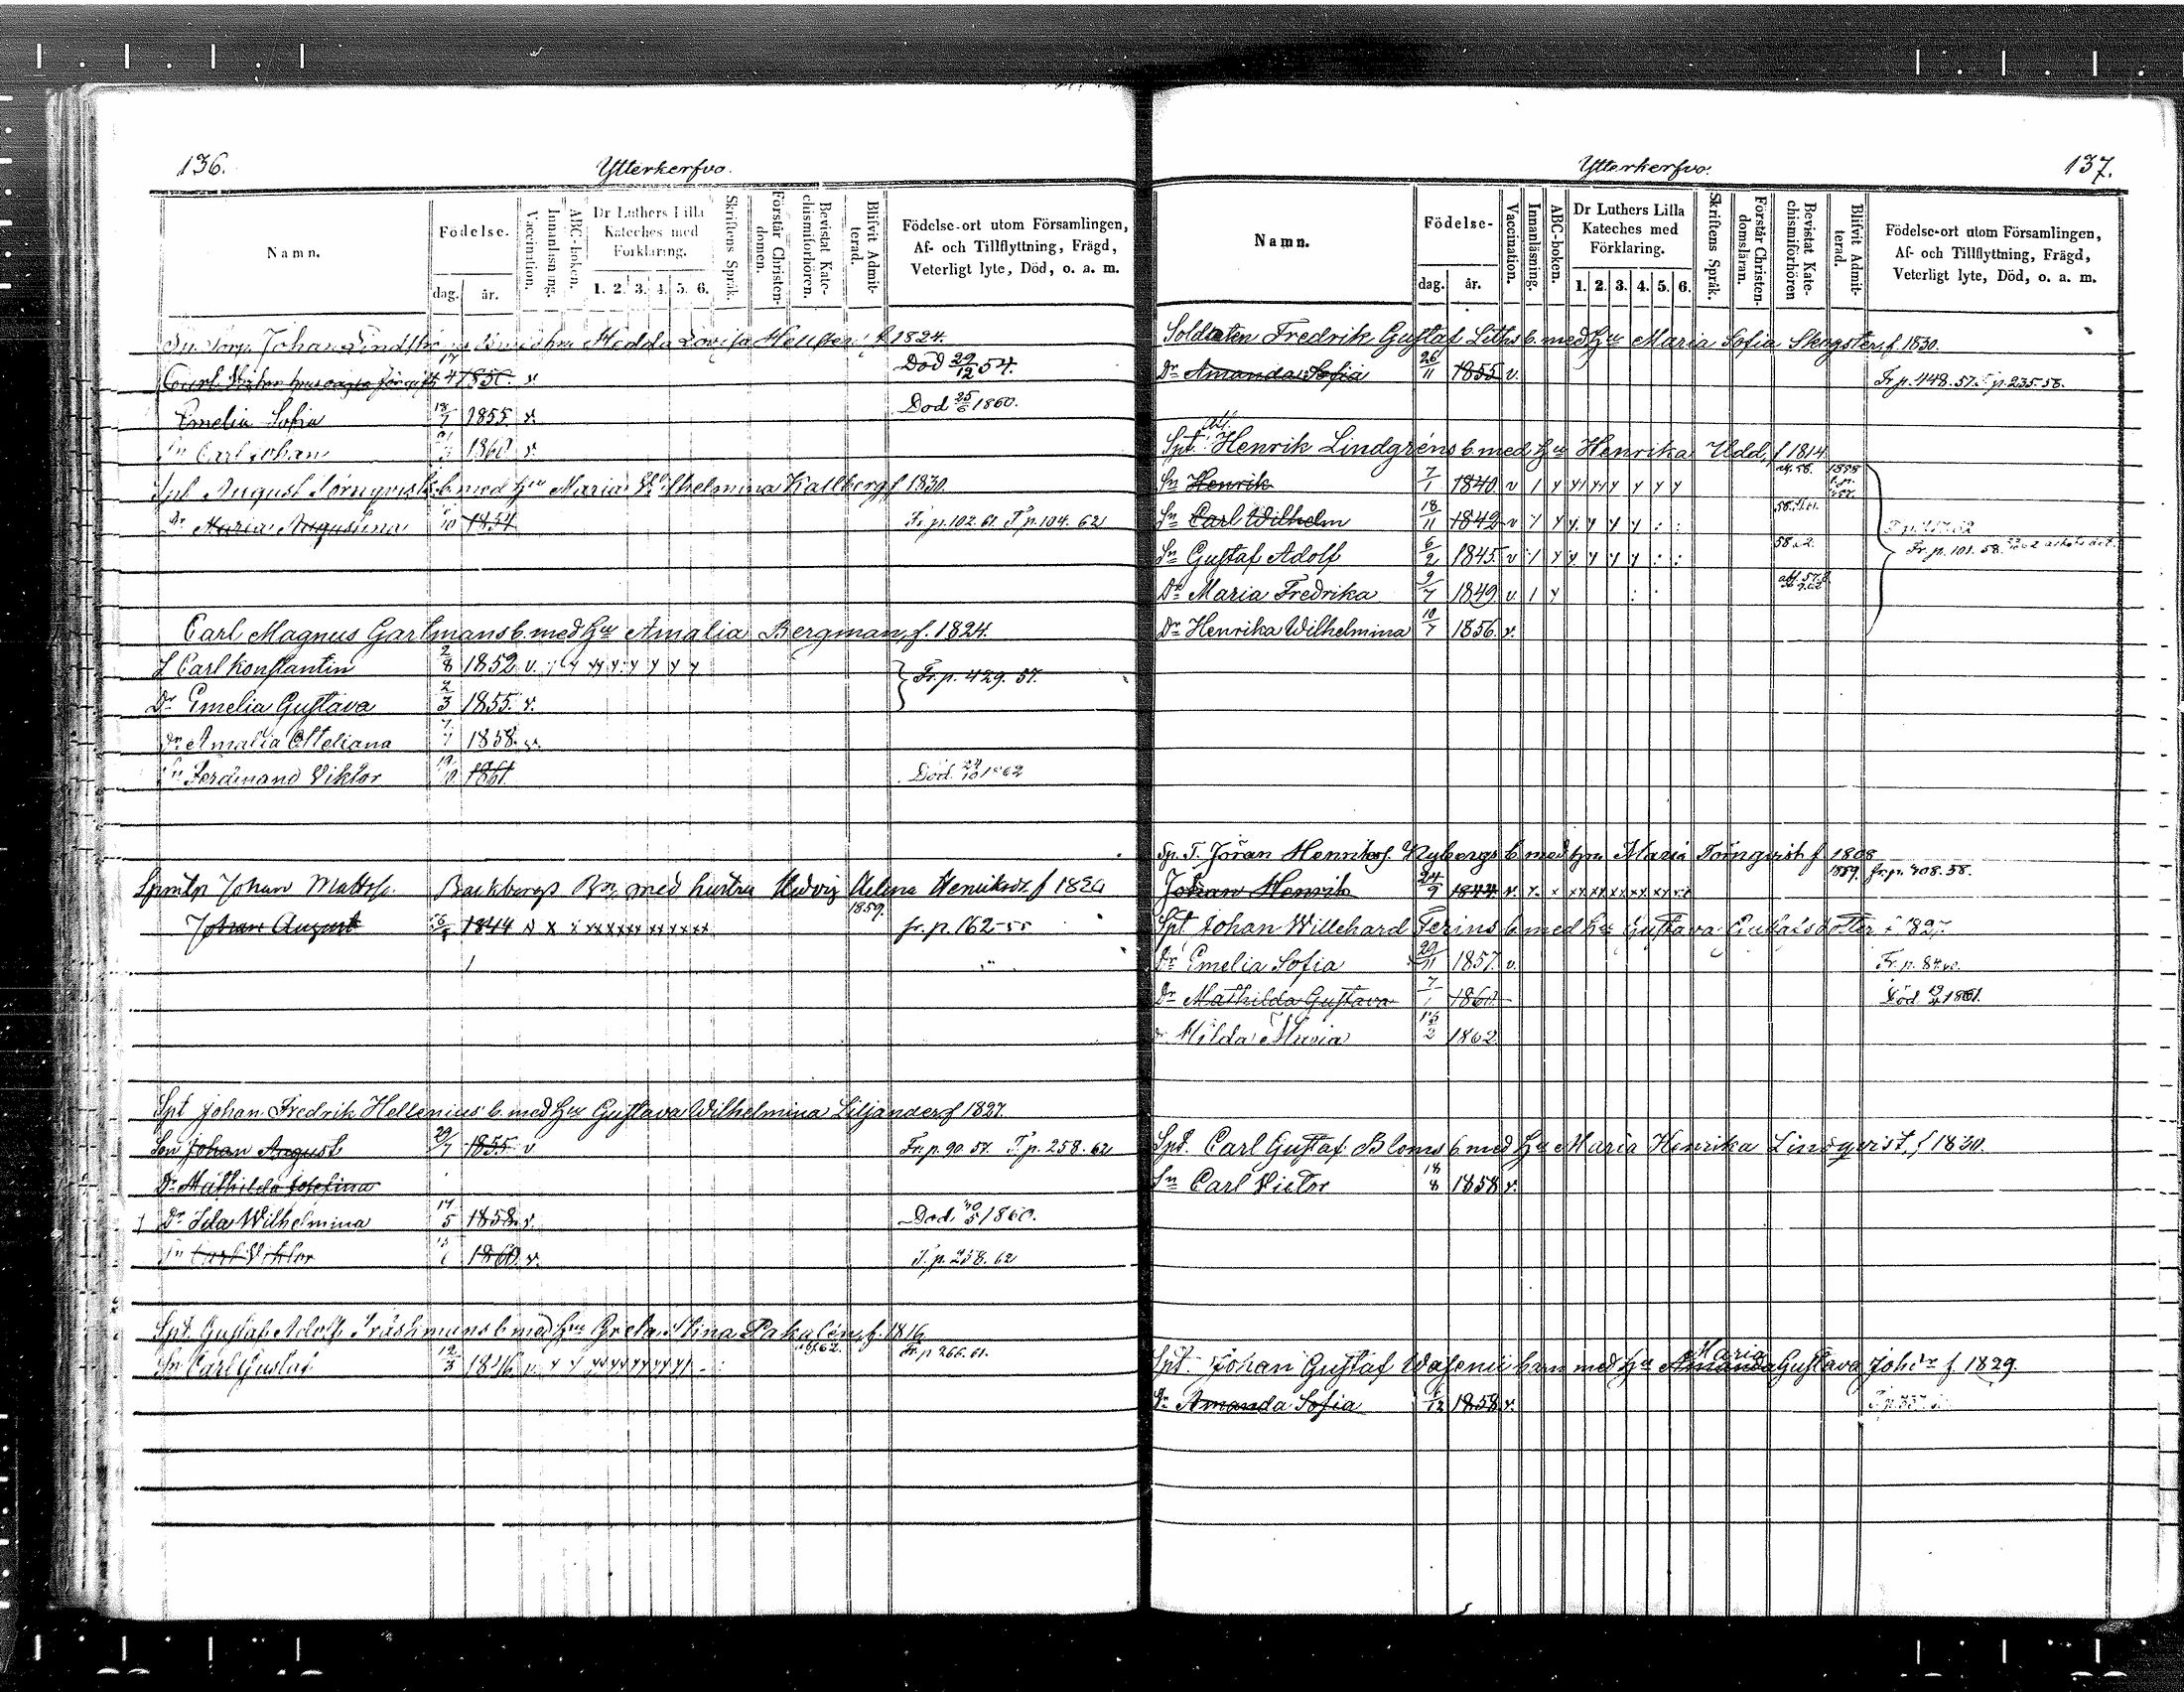 136.
Ytterkerfvo.
Namn.
Födelse.
dag.
år.
Vaccination.
Innanläsning.
ABC-boken.
Dr Luthers Lilla Kateches med Förklaring.
1. 2. 3. 4. 5. 6.
Skriftens Språk.
Förstår Christendomen.
Bevistat Katechismiförhören.
Blifvit Admitterad.
Födelse-ort utom Församlingen, Af- och Tillflyttning, Frägd, Veterligt lyte, Död, o. a. m.
Johan Lindströms b med hru Hedda Lovisa f 1824.
1850. v. Död 29/12 54.
Emelia Sofia 18/7 1855. v. Död 25/6 1860.
Sn Carl Johan 1860 v.
Spt August Törnqvists b. med Hru Maria Wilhelmina Kallberg, f 1830.
Dr Maria Augustina 1854 Fr p. 102. 61. T p. 104. 62
Carl Magnus Garlmans b. med Hru Amalia Bergman, f. 1824.
S Carl Konstantin 2/8 1852 v. Fr. p. 429. 57.
Dr Emelia Gustava 2/3 1855. v.
Dr Amalia 7/7 1858. v.
Sn Ferdinand Viktor 19/10 1861. Död 1862
Johan Mattss. Backbergs Bn, med hustru Hedvig Helena Henriksdr. f 1820
Johan August 1844 x x 1859. fr. p. 162-55
Spt Johan Fredrik Hellenius b. med Hru Gustava Wilhelmina Liljander, f 1827.
Son Johan August 29/7 1855 v Fr. p. 90. 57. T p. 258. 62
Dr Mathilda Josefina
Dr Ida Wilhelmina 14/5 1858. v. Död 30/5 1860.
Sn Carl Viktor 1860. v. T. p. 258. 62
Spt. Gustaf Adolf Träskmans b med Hru Greta Stina Pakalén, f. 1816
Sn Carl Gustaf 12/3 1846 v. Fr. p 266. 61.
Ytterkerfvo.
137.
Namn.
Födelse-
dag.
år.
Vaccination.
Innanläsning.
ABC-boken.
Dr Luthers Lilla Kateches med Förklaring.
1. 2. 3. 4. 5. 6.
Skriftens Språk.
Förstår Christendomsläran.
Bevistat Katechismiförhören
Blifvit Admitterad.
Födelse-ort utom Församlingen, Af- och Tillflyttning, Frägd, Veterligt lyte, Död, o. a. m.
Soldaten Fredrik Gustaf Liths b. med Hru Maria Sofia Stengster, f. 1830.
Dr Amanda Sofia 26/11 1855 v. Fr p. 448. 57. T p. 235 58.
Spt. Henrik Lindgréns b. med Hru Henrika Udd, f 1814.
Sn Henrik 7/1 1840 v 1858
Sn Carl Wilhelm 18/11 1842 v
Sn Gustaf Adolf 6/2 1845. v Fr. p. 101. 58.
Dr Maria Fredrika 9/7 1849 v.
Dr Henrika Wilhelmina 10/7 1856. v.
Sp. T. Jöran Henrikss. Nybergs b med hru Maria Törnqvist f 1808
Johan Henrik 24/9 1844 v. 1859. fr. p. 408. 58.
Spt. Johan Willehard Ferins b. med Hru Gustava Gustafsdotter f 1827
Dr Emelia Sofia 29/11 1857. v. Fr. p. 84
Dr Mathilda Gustava 7/1 1860 Död 1861.
Dr Hilda Maria 1862
Spt. Carl Gustaf Bloms b med Hru Maria Henrika Lindqvist, f 1830.
Sn Carl Victor 18/8 1858 v.
Spt. Johan Gustaf Wasenii barn med Hru Amanda Maria Gustava Johdr f. 1829.
Dr Amanda Sofia 1858 v.